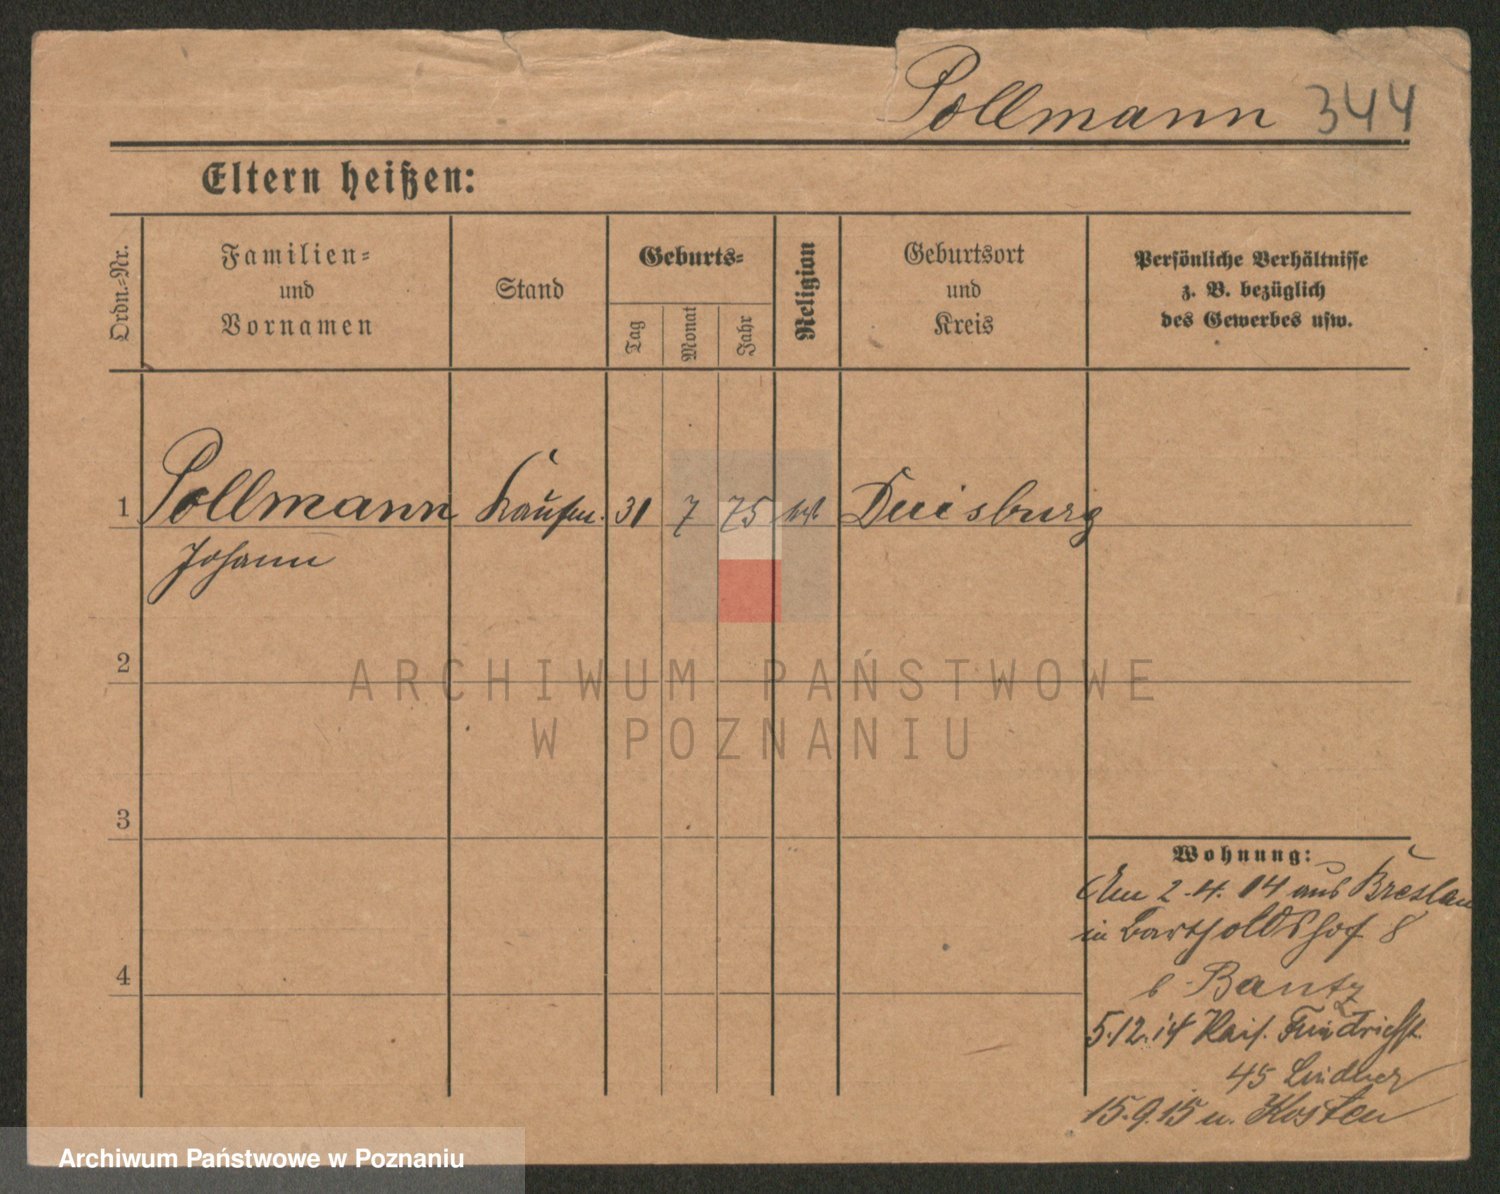 Pollmann 344
Eltern heißen:
Ordn.-Nr.
Familien-
und
Vornamen
Stand
Geburts-
Tag
Monat
Jahr
Religion
Geburtsort
und
Kreis
Persönliche Verhältnisse
z. B. bezüglich
des Gewerbes usw.
1 Pollmann Kaufm. 31 7 75 Duisburg
Johann
2
3
4
Wohnung:
2.4.14 aus Breslau
in Bartholdshof 8
b Bantz
5.12.14 Kais. Friedrichst.
45 Lindner
15.9.15 n. Kosten
ARCHIWUM PAŃSTWOWE
W POZNANIU
Archiwum Państwowe w Poznaniu